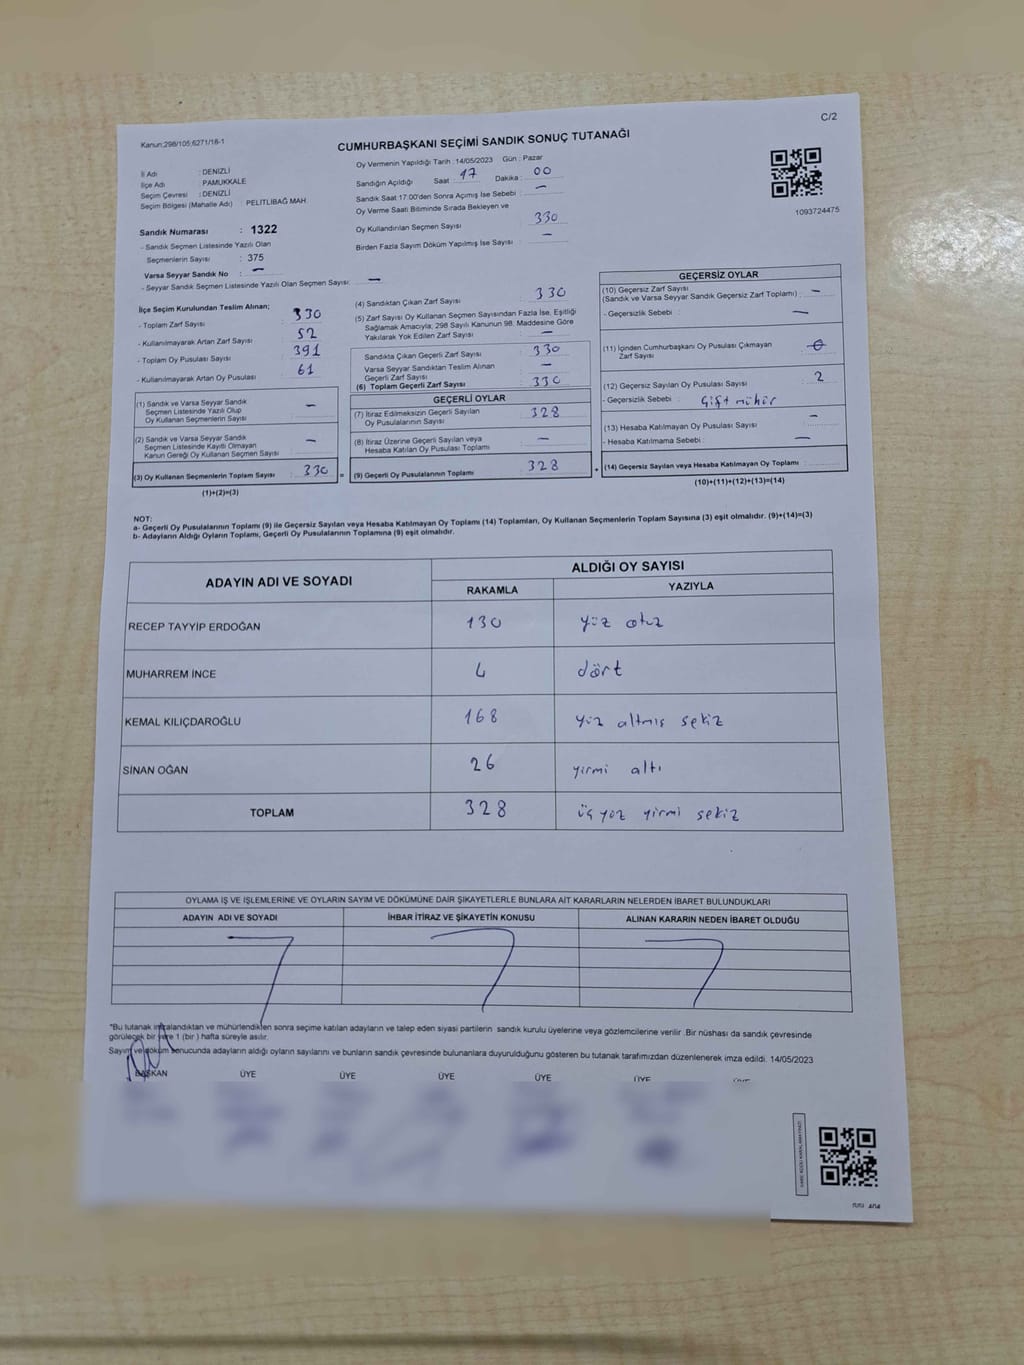 C/2
Kanun:298/105;6271/18-1
CUMHURBAŞKANI SEÇİMİ SANDIK SONUÇ TUTANAĞI
İl Adı : DENİZLİ
İlçe Adı : PAMUKKALE
Seçim Çevresi : DENİZLİ
Seçim Bölgesi (Mahalle Adı) : PELİTLİBAĞ MAH.
Sandık Numarası : 1322
- Sandık Seçmen Listesinde Yazılı Olan
Seçmenlerin Sayısı : 375
Varsa Seyyar Sandık No : -
- Seyyar Sandık Seçmen Listesinde Yazılı Olan Seçmen Sayısı: -
Oy Vermenin Yapıldığı Tarih :14/05/2023 Gün : Pazar
Sandığın Açıldığı Saat : 17 Dakika : 00
Sandık Saat 17:00'den Sonra Açımış İse Sebebi : -
Oy Verme Saati Bitiminde Sırada Bekleyen ve
Oy Kullandırılan Seçmen Sayısı : 330
Birden Fazla Sayım Döküm Yapılmış İse Sayısı : -
1093724475
İlçe Seçim Kurulundan Teslim Alınan;
- Toplam Zarf Sayısı : 330
- Kullanılmayarak Artan Zarf Sayısı : 52
- Toplam Oy Pusulası Sayısı : 391
- Kullanılmayarak Artan Oy Pusulası : 61
(1) Sandık ve Varsa Seyyar Sandık
Seçmen Listesinde Yazılı Olup
Oy Kullanan Seçmenlerin Sayısı : -
(2) Sandık ve Varsa Seyyar Sandık
Seçmen Listesinde Kayıtlı Olmayan
Kanun Gereği Oy Kullanan Seçmen Sayısı : -
(3) Oy Kullanan Seçmenlerin Toplam Sayısı : 330 =
(1)+(2)=(3)
(4) Sandıktan Çıkan Zarf Sayısı : 330
(5) Zarf Sayısı Oy Kullanan Seçmen Sayısından Fazla İse, Eşitliği
Sağlamak Amacıyla; 298 Sayılı Kanunun 98. Maddesine Göre
Yakılarak Yok Edilen Zarf Sayısı : -
Sandıkta Çıkan Geçerli Zarf Sayısı : 330
Varsa Seyyar Sandıktan Teslim Alınan
Geçerli Zarf Sayısı : -
(6) Toplam Geçerli Zarf Sayısı : 330
GEÇERLİ OYLAR
(7) İtiraz Edilmeksizin Geçerli Sayılan
Oy Pusulasının Sayısı : 328
(8) İtiraz Üzerine Geçerli Sayılan veya
Hesaba Katılan Oy Pusulası Toplamı : -
(9) Geçerli Oy Pusulalarının Toplamı : 328 +
GEÇERSİZ OYLAR
(10) Geçersiz Zarf Sayısı
(Sandık ve Varsa Seyyar Sandık Geçersiz Zarf Toplamı) : -
- Geçersizlik Sebebi : -
(11) İçinden Cumhurbaşkanı Oy Pusulası Çıkmayan
Zarf Sayısı
(12) Geçersiz Sayılan Oy Pusulası Sayısı : 2
- Geçersizlik Sebebi : Çift mühür
(13) Hesaba Katılmayan Oy Pusulası Sayısı : -
- Hesaba Katılmama Sebebi : -
(14) Geçersiz Sayılan veya Hesaba Katılmayan Oy Toplamı :
(10)+(11)+(12)+(13)=(14)
NOT:
a- Geçerli Oy Pusulalarının Toplamı (9) ile Geçersiz Sayılan veya Hesaba Katılmayan Oy Toplamı (14) Toplamları, Oy Kullanan Seçmenlerin Toplam Sayısına (3) eşit olmalıdır. (9)+(14)=(3)
b- Adayların Aldığı Oyların Toplamı, Geçerli Oy Pusulalarının Toplamına (9) eşit olmalıdır.
ADAYIN ADI VE SOYADI
ALDIĞI OY SAYISI
RAKAMLA YAZIYLA
RECEP TAYYİP ERDOĞAN 130 yüz otuz
MUHARREM İNCE 4 dört
KEMAL KILIÇDAROĞLU 168 yüz altmış sekiz
SİNAN OĞAN 26 yirmi altı
TOPLAM 328 üç yüz yirmi sekiz
OYLAMA İŞ VE İŞLEMLERİNE VE OYLARIN SAYIM VE DÖKÜMÜNE DAİR ŞİKAYETLERLE BUNLARA AİT KARARLARIN NELERDEN İBARET BULUNDUKLARI
ADAYIN ADI VE SOYADI İHBAR İTİRAZ VE ŞİKAYETİN KONUSU ALINAN KARARIN NEDEN İBARET OLDUĞU
*Bu tutanak imzalandıktan ve mühürlendikten sonra seçime katılan adayların ve talep eden siyasi partilerin sandık kurulu üyelerine veya gözlemcilerine verilir .Bir nüshası da sandık çevresinde
görülecek bir yere 1 (bir) hafta süreyle asılır.
Sayım ve döküm sonucunda adayların aldığı oyların sayılarını ve bunların sandık çevresinde bulunanlara duyurulduğunu gösteren bu tutanak tarafımızdan düzenlenerek imza edildi. 14/05/2023
BAŞKAN ÜYE ÜYE ÜYE ÜYE ÜYE ÜYE